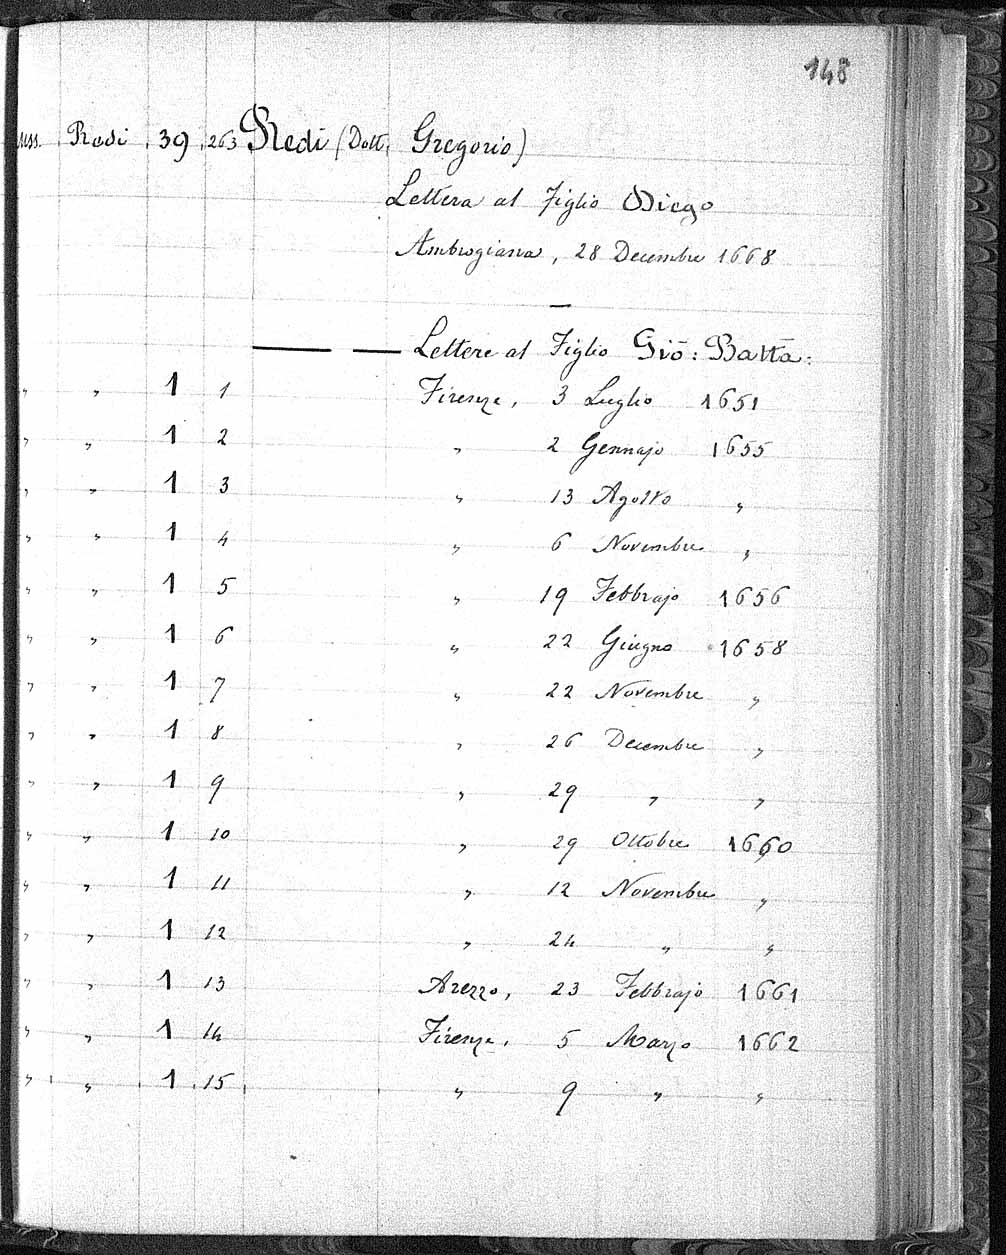 148
Mss. Redi 39 263 Redi (Dott. Gregorio)
Lettera al Figlio Diego
Ambrogiana, 28 Decembre 1668
—
— — Lettere al Figlio Gio: Batta:
„ „ 1 1 Firenze, 3 Luglio 1651
„ „ 1 2 „ 2 Gennajo 1655
„ „ 1 3 „ 13 Agosto „
„ „ 1 4 „ 6 Novembre „
„ „ 1 5 „ 19 Febbrajo 1656
„ „ 1 6 „ 22 Giugno 1658
„ „ 1 7 „ 22 Novembre „
„ „ 1 8 „ 26 Decembre „
„ „ 1 9 „ 29 „ „
„ „ 1 10 „ 29 Ottobre 1660
„ „ 1 11 „ 12 Novembre „
„ „ 1 12 „ 24 „ „
„ „ 1 13 Arezzo, 23 Febbrajo 1661
„ „ 1 14 Firenze, 5 Marzo 1662
„ „ 1 15 „ 9 „ „